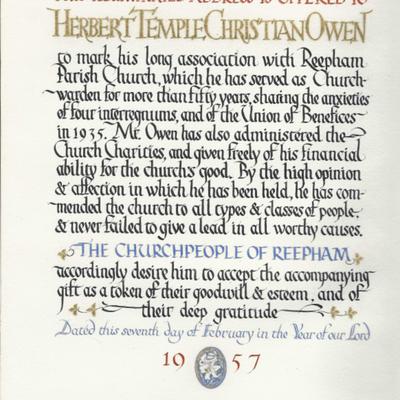 This Illuminated Address is offered to
HERBERT TEMPLE CHRISTIAN OWEN
to mark his long association with Reepham
Parish Church, which he has served as Church-
warden for more than fifty years, sharing the anxieties
of four interregnums, and of the Union of Benefices
in 1935. Mr. Owen has also administered the
Church Charities, and given freely of his financial
ability for the church's good. By the high opinion
& affection in which he has been held, he has com-
mended the church to all types & classes of people,
& never failed to give a lead in all worthy causes.
THE CHURCHPEOPLE OF REEPHAM
accordingly desire him to accept the accompanying
gift as a token of their goodwill & esteem, and of
their deep gratitude
Dated this seventh day of February in the Year of our Lord
1957